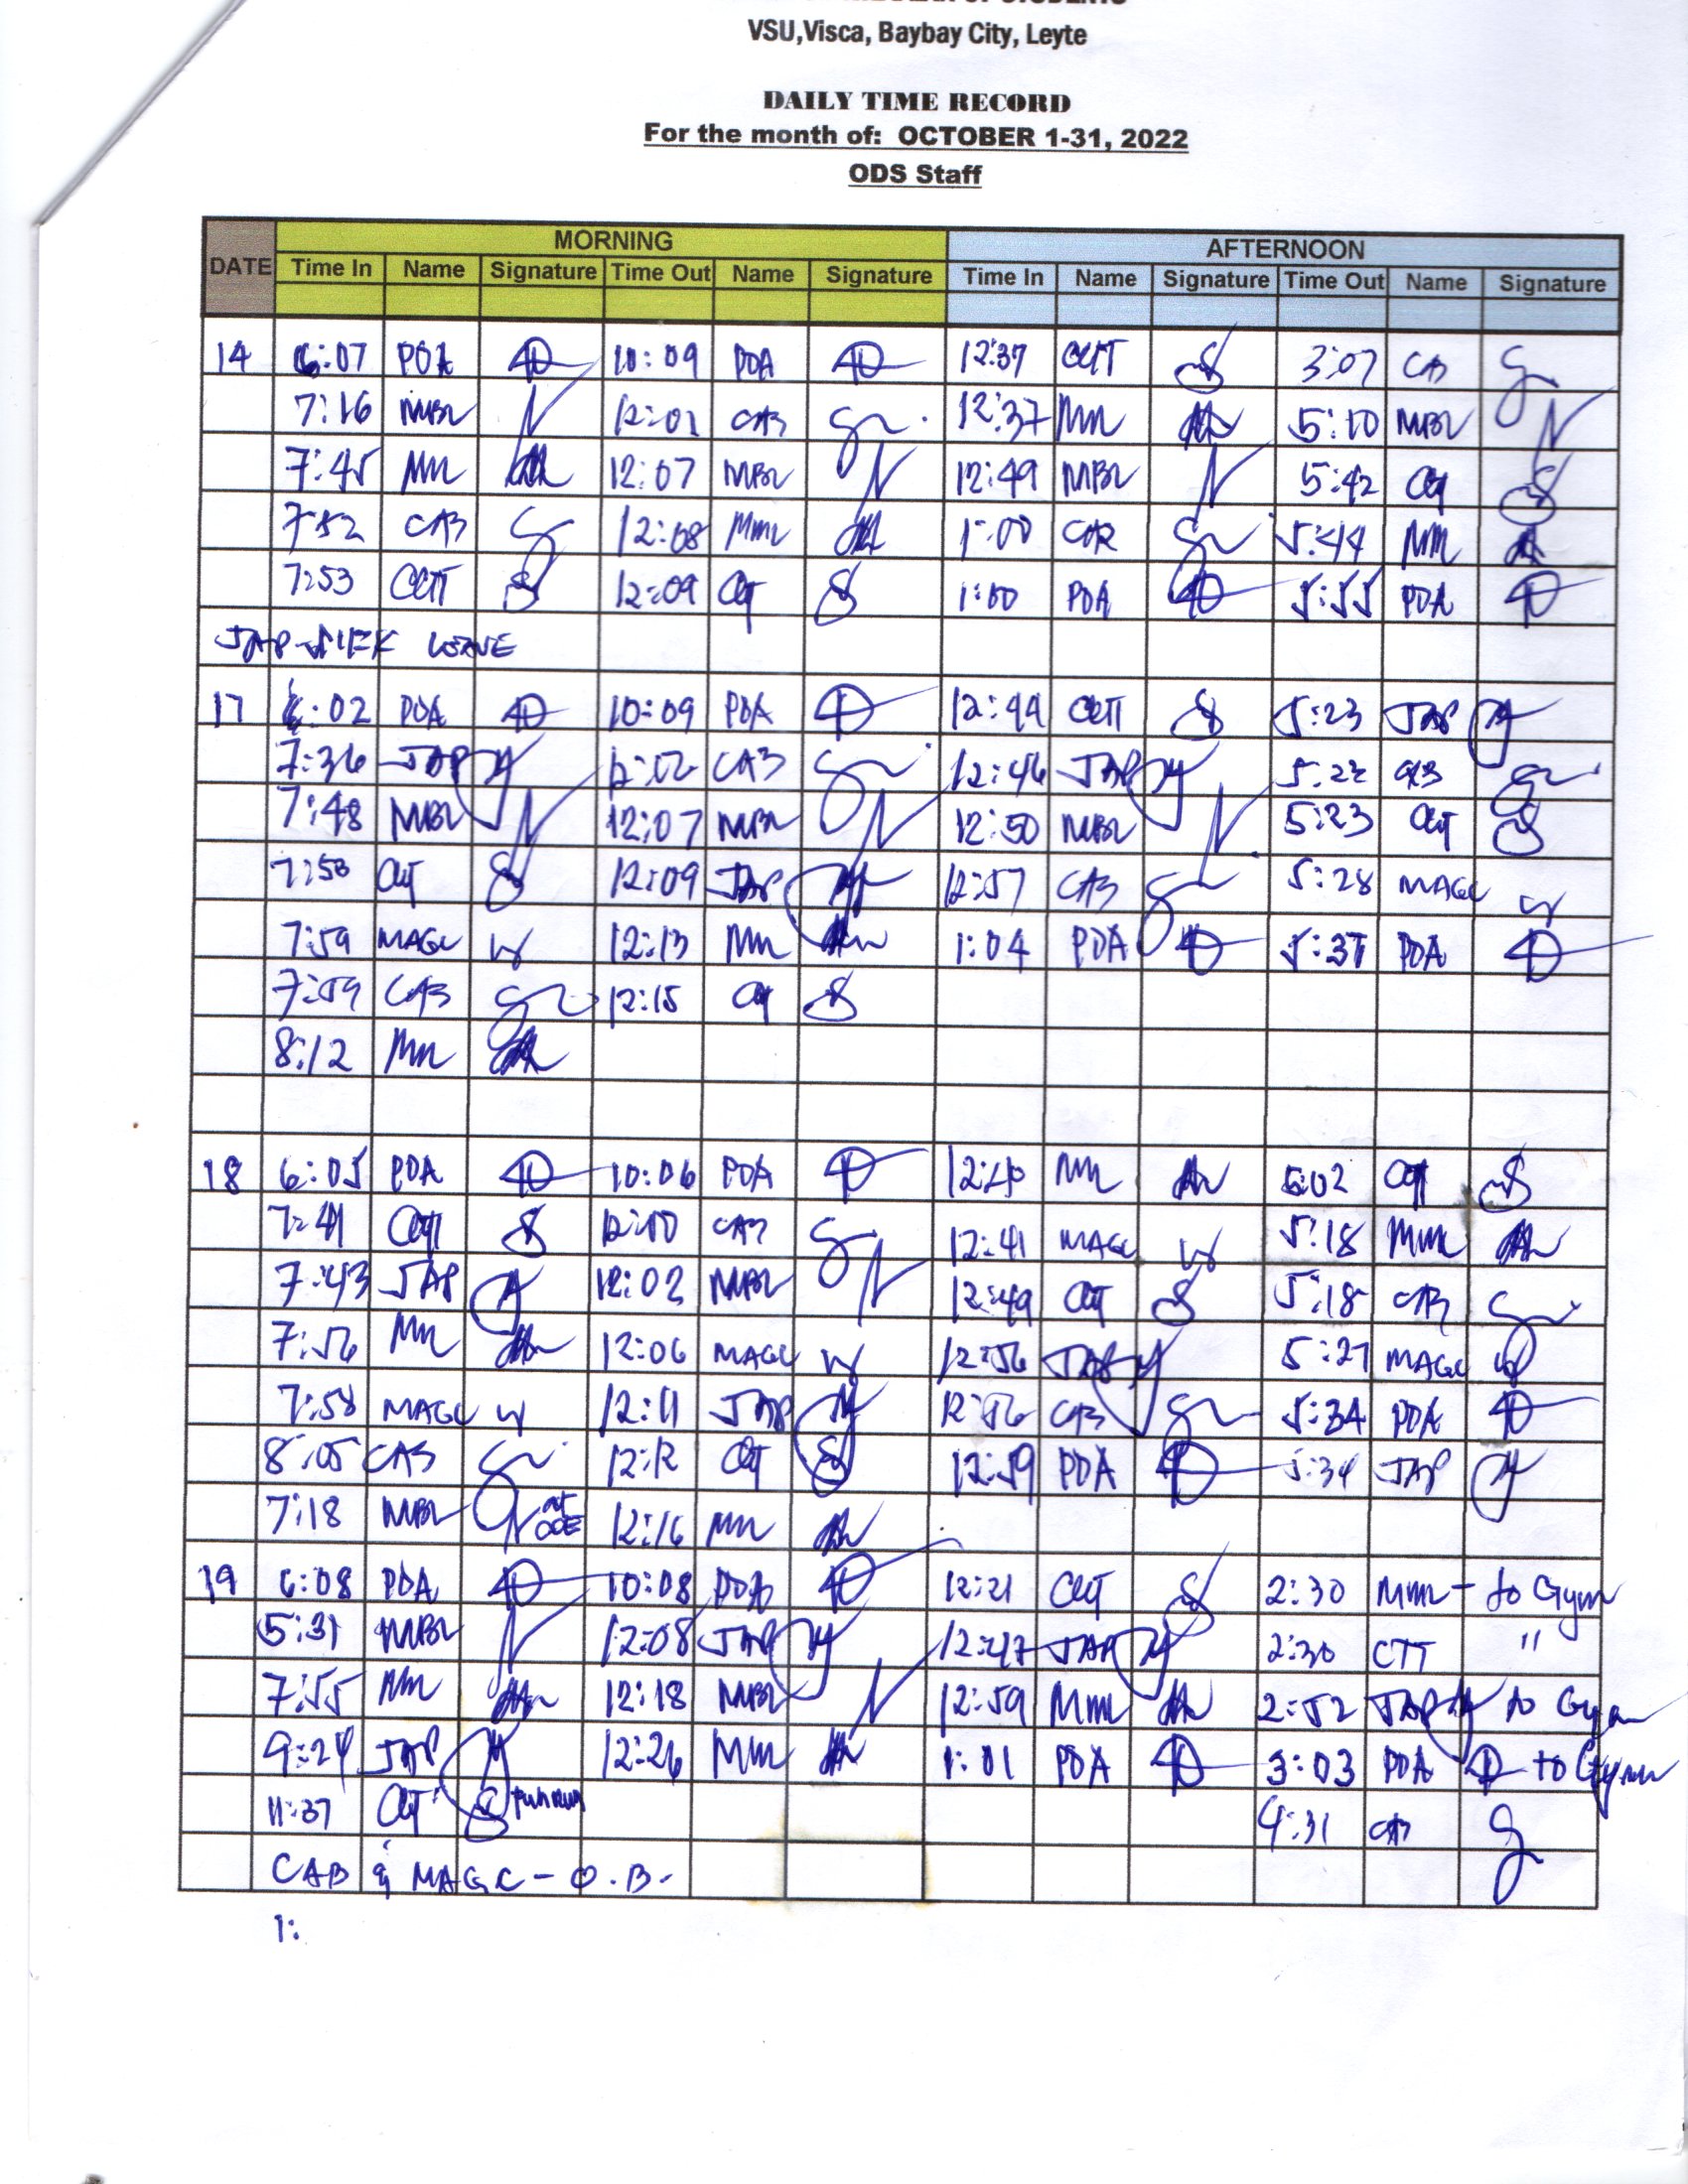 VSU,Visca, Baybay City, Leyte
DAILY TIME RECORD
For the month of: OCTOBER 1-31, 2022
ODS Staff
DATE MORNING AFTERNOON
Time In Name Signature Time Out Name Signature Time In Name Signature Time Out Name Signature
14 6:07 PDA 10:09 PDA 12:37 CCTT 3:07 CAB
7:16 MBL 12:01 CAB 12:37 MM 5:10 MBL
7:45 MM 12:07 MBL 12:49 MBL 5:42
7:52 CAB 12:08 MML 1:00 CAB 5:44 MM
7:53 CCTT 12:09 1:00 PDA 5:55 PDA
JAP-SICK LEAVE
17 6:02 PDA 10:09 PDA 12:44 CCTT 5:23 JAP
7:36 JAP 12:02 CAB 12:46 JAP 5:22 CAB
7:48 MBL 12:07 MBL 12:50 MBL 5:23
7:50 12:09 JAP 12:57 CAB 5:28 MAGC
7:59 MAGC 12:13 MM 1:04 PDA 5:37 PDA
7:59 CAB 12:15
8:12 MM
18 6:05 PDA 10:06 PDA 12:40 MM 5:02
7:41 12:00 CAB 12:41 MAGC 5:18 MML
7:43 JAP 12:02 MBL 12:49 5:18 CAB
7:56 MM 12:06 MAGC 12:56 JAP 5:27 MAGC
7:58 MAGC 12:11 JAP 12:56 CAB 5:34 PDA
8:05 CAB 12:12 12:59 PDA 5:34 JAP
7:18 MBL at ODE 12:16 MM
19 6:08 PDA 10:08 PDA 12:21 2:30 MML - to Gym
5:31 MBL 12:08 JAP 12:47 JAP 2:30 CTT "
7:55 MM 12:18 MBL 12:59 MML 2:52 JAP to Gym
9:24 JAP 12:26 MM 1:01 PDA 3:03 PDA to Gym
11:37 4:31 CAB
CAB & MAGC - O.B.
1: